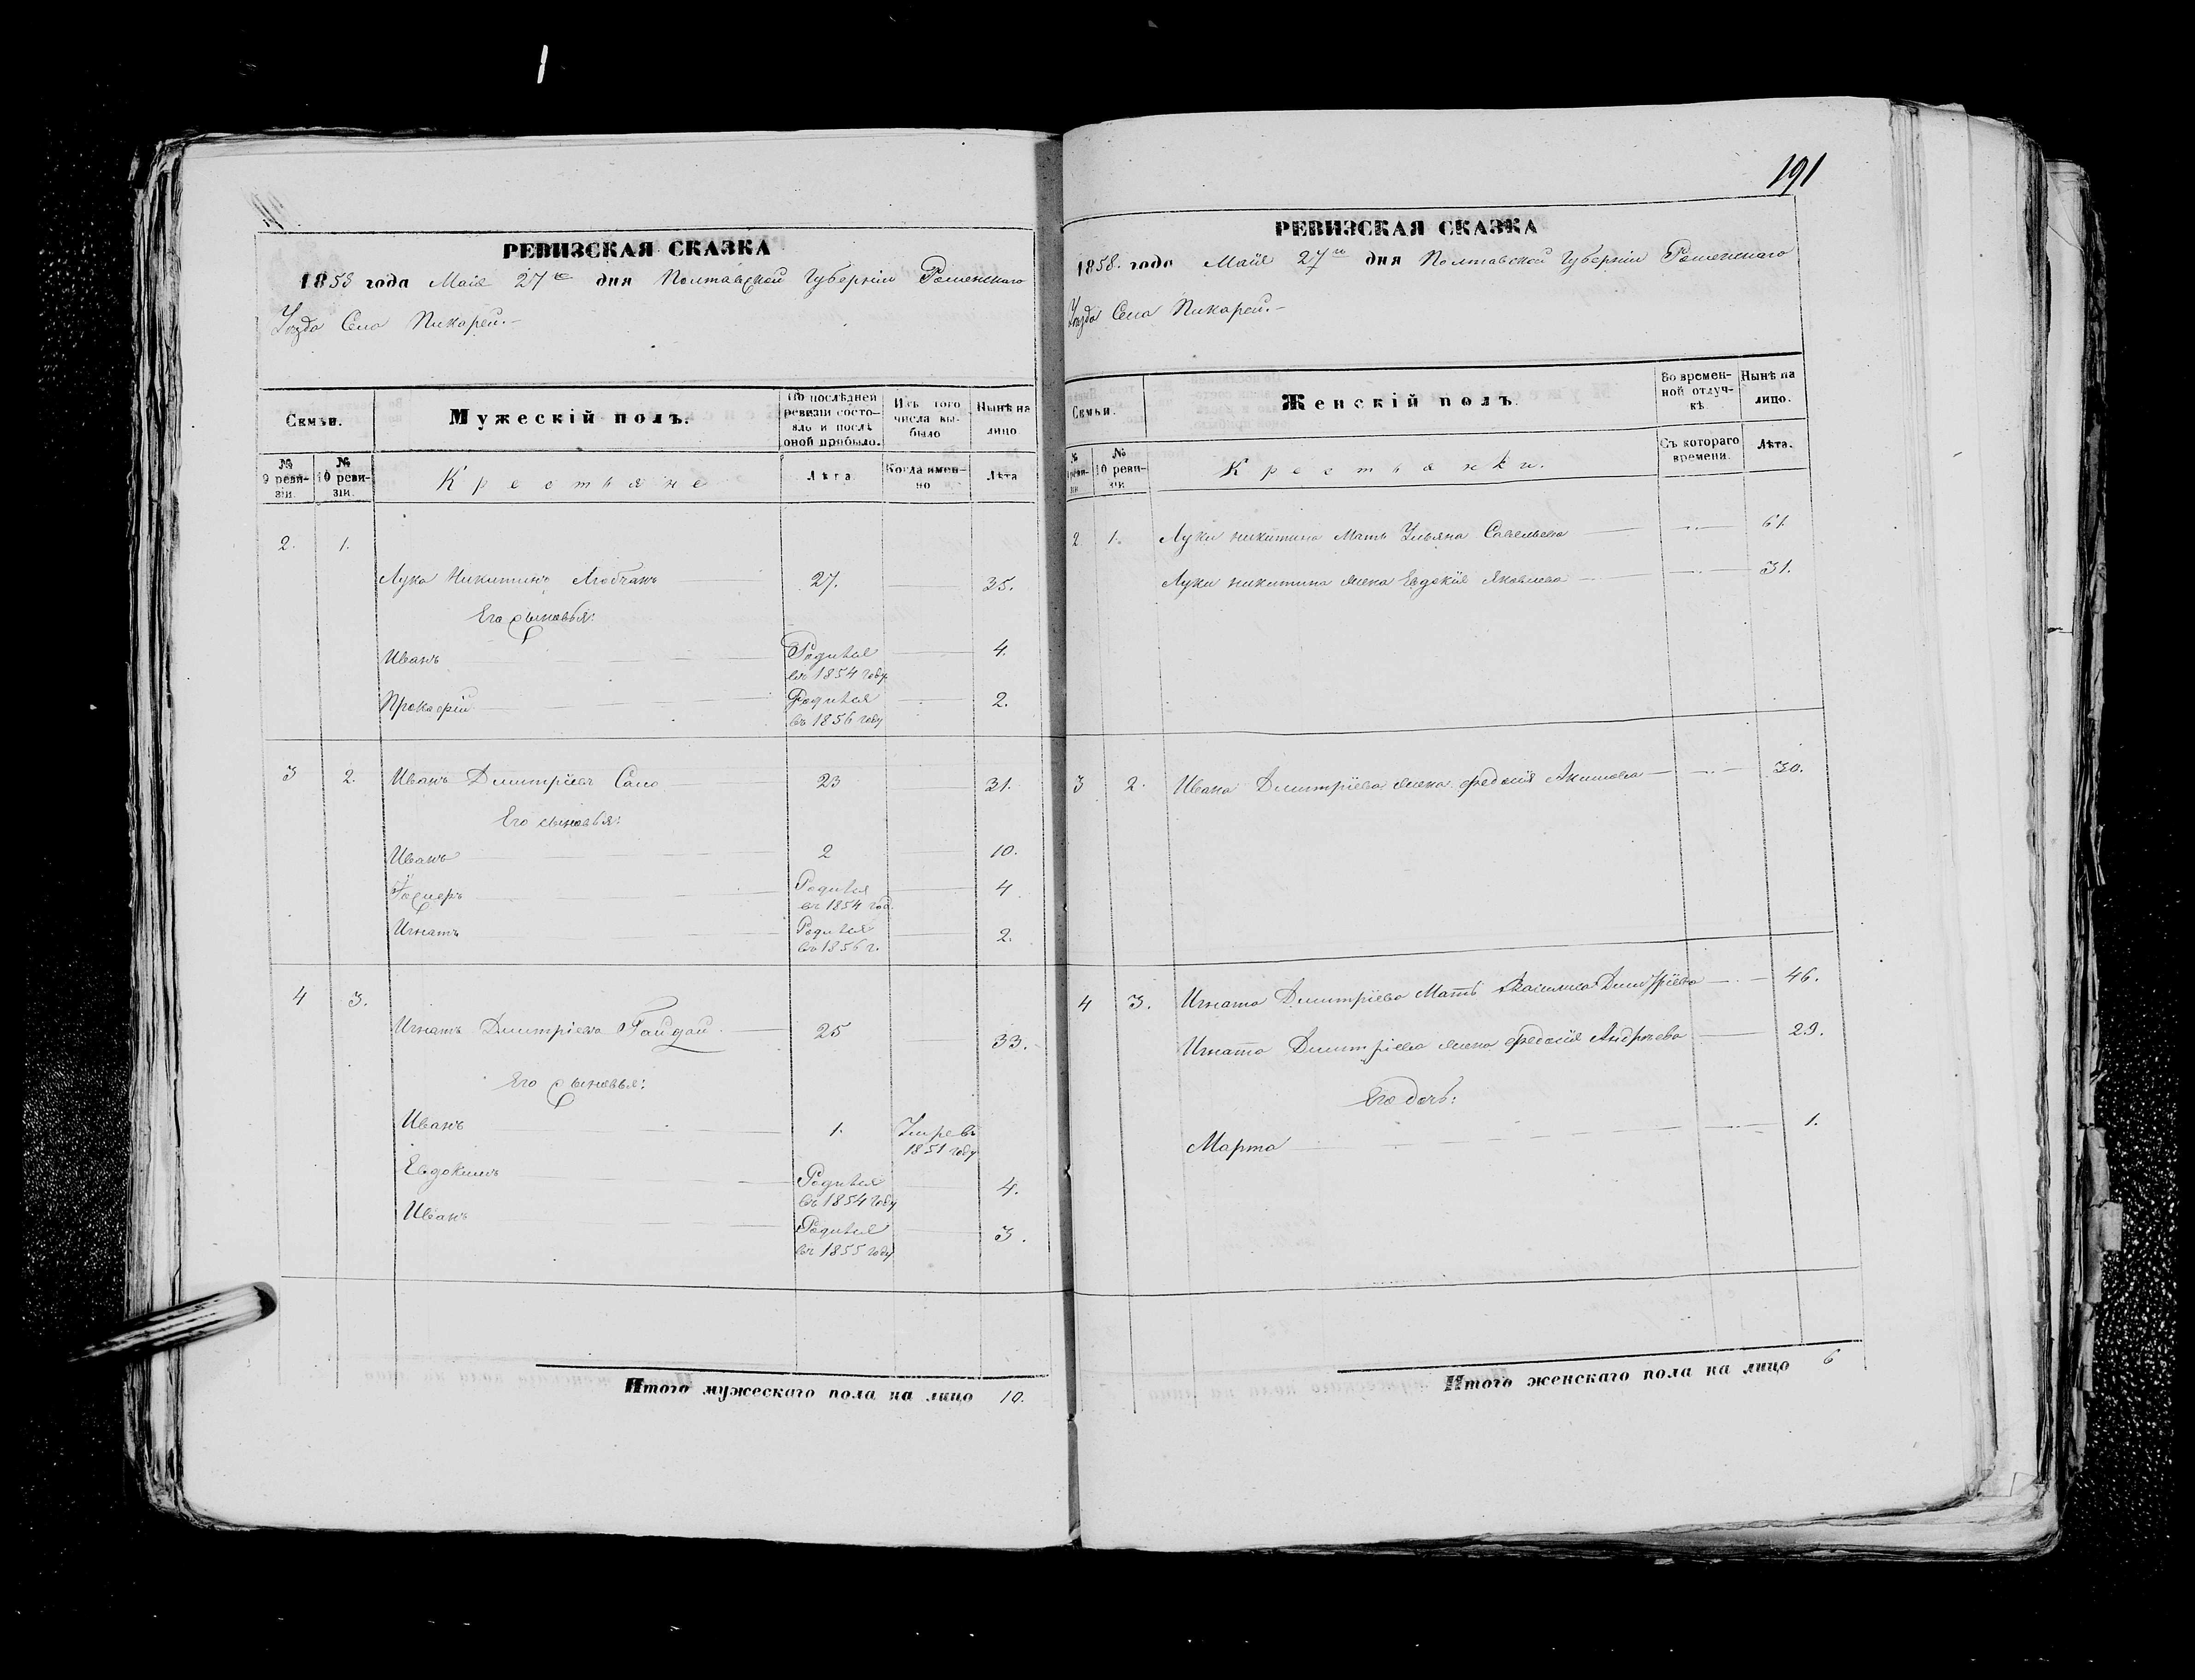 191
РЕВИЗСКАЯ СКАЗКА
1858 года Маія 27го дня Полтавской Губерніи Роменскаго
Уѣзда Села Пикарей.
Семьи.
Мужескій полъ.
По послѣдней ревизіи состояло и послѣ оной прибыло.
Изъ того числа выбыло
Нынѣ на лицо
№ 9 ревизіи.
№ 10 ревизіи.
Крестьяне
Лѣта
Когда именно
Лѣта
2. 1.
Лука Никитинъ 27. 35.
Его сыновья:
Иванъ Родился въ 1854 году 4.
Прокофій Родился въ 1856 году 2.
3 2. Иванъ Дмитріевъ Сало 23 31.
Его сыновья:
Иванъ 2 10.
Родился въ 1854 год. 4
Игнатъ Родился въ 1856 г. 2.
4 3.
Игнатъ Дмитріевъ Гайдай 25 33.
Его сыновья:
Иванъ 1. Умре въ 1851 году
Евдокимъ Родился въ 1854 году 4.
Иванъ Родился въ 1855 году 3.
Итого мужескаго пола на лицо 10.
РЕВИЗСКАЯ СКАЗКА
1858. года Маія 27го дня Полтавской Губерніи Роменскаго
Уѣзда Села Пикарей.
Семьи.
Женскій полъ.
Во временной отлучкѣ
Нынѣ на лицо.
№ 9 ревизіи
№ 10 ревизіи
Крестьянки.
Съ котораго времени.
Лѣта.
2 1. Луки Никитина Мать Ульяна Савельева 61
Луки Никитина жена Евдокія Яковлева 31.
3 2. Ивана Дмитріева жена Федосія Акимова 30.
4 3. Игната Дмитріева Мать Василиса Дмитріева 46.
Игната Дмитріева жена Федосія Андрѣева 29.
Его дочь:
Марта 1.
Итого женскаго пола на лицо 6